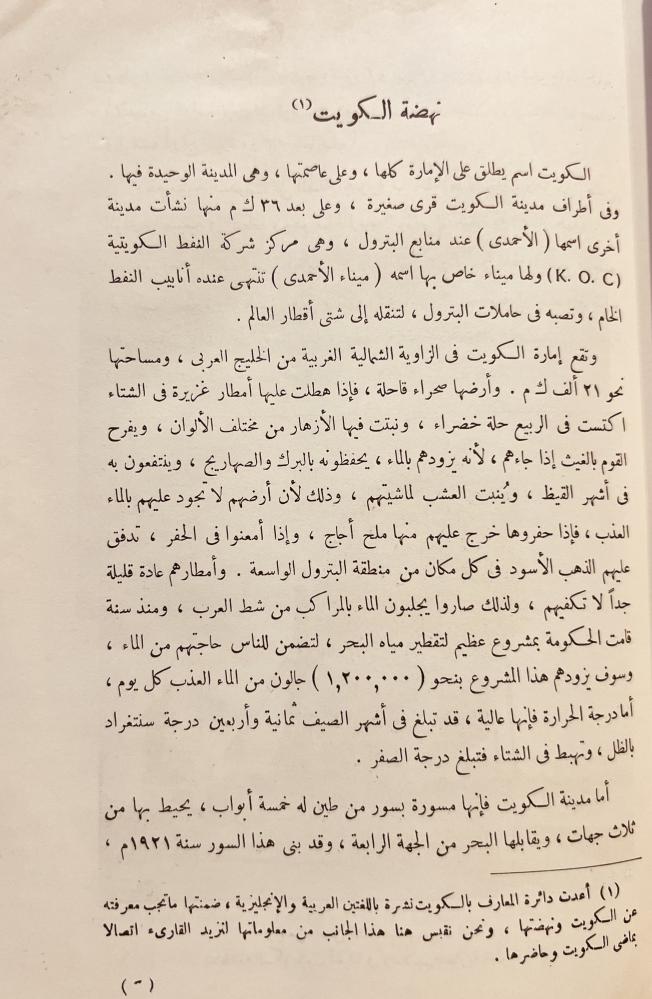 نهضة الكويت (١)
الكويت اسم يطلق على الإمارة كلها ، وعلى عاصمتها ، وهى المدينة الوحيدة فيها .
وفى أطراف مدينة الكويت قرى صغيرة ، وعلى بعد ٣٦ ك م منها نشأت مدينة
أخرى اسمها ( الأحمدى ) عند منابع البترول ، وهى مركز شركة النفط الكويتية
(K. O. C) ولها ميناء خاص بها اسمه ( ميناء الأحمدى ) تنتهى عنده أنابيب النفط
الخام ، وتصبه فى حاملات البترول ، لتنقله إلى شتى أقطار العالم .
وتقع إمارة الكويت فى الزاوية الشمالية الغربية من الخليج العربى ، ومساحتها
نحو ٢١ ألف ك م . وأرضها صحراء قاحلة ، فإذا هطلت عليها أمطار غزيرة فى الشتاء
اكتست فى الربيع حلة خضراء ، ونبتت فيها الأزهار من مختلف الألوان ، ويفرح
القوم بالغيث إذا جاءهم ، لأنه يزودهم بالماء ، يحفظونه بالبرك والصهاريج ، وينتفعون به
فى أشهر القيظ ، ويُنبت العشب لماشيتهم ، وذلك لأن أرضهم لا تجود عليهم بالماء
العذب ، فإذا حفروها خرج عليهم منها ملح أجاج ، وإذا أمعنوا فى الحفر ، تدفق
عليهم الذهب الأسود فى كل مكان من منطقة البترول الواسعة . وأمطارهم عادة قليلة
جداً لا تكفيهم ، ولذلك صاروا يجلبون الماء بالمراكب من شط العرب ، ومنذ سنة
قامت الحكومة بمشروع عظيم لتقطير مياه البحر ، لتضمن للناس حاجتهم من الماء ،
وسوف يزودهم هذا المشروع بنحو ( ١,٢٠٠,٠٠٠ ) جالون من الماء العذب كل يوم ،
أما درجة الحرارة فإنها عالية ، قد تبلغ فى أشهر الصيف ثمانية وأربعين درجة سنتغراد
بالظل ، وتهبط فى الشتاء فتبلغ درجة الصفر .
أما مدينة الكويت فإنها مسورة بسور من طين له خمسة أبواب ، يحيط بها من
ثلاث جهات ، ويقابلها البحر من الجهة الرابعة ، وقد بنى هذا السور سنة ١٩٢١م ،
(١) أعدت دائرة المعارف بالكويت نشرة باللغتين العربية والإنجليزية ، ضمنتها ما تجب معرفته
عن الكويت ونهضتها ، ونحن نقبس هنا هذا الجانب من معلوماتها لنزيد القارىء اتصالا
بماضى الكويت وحاضرها .